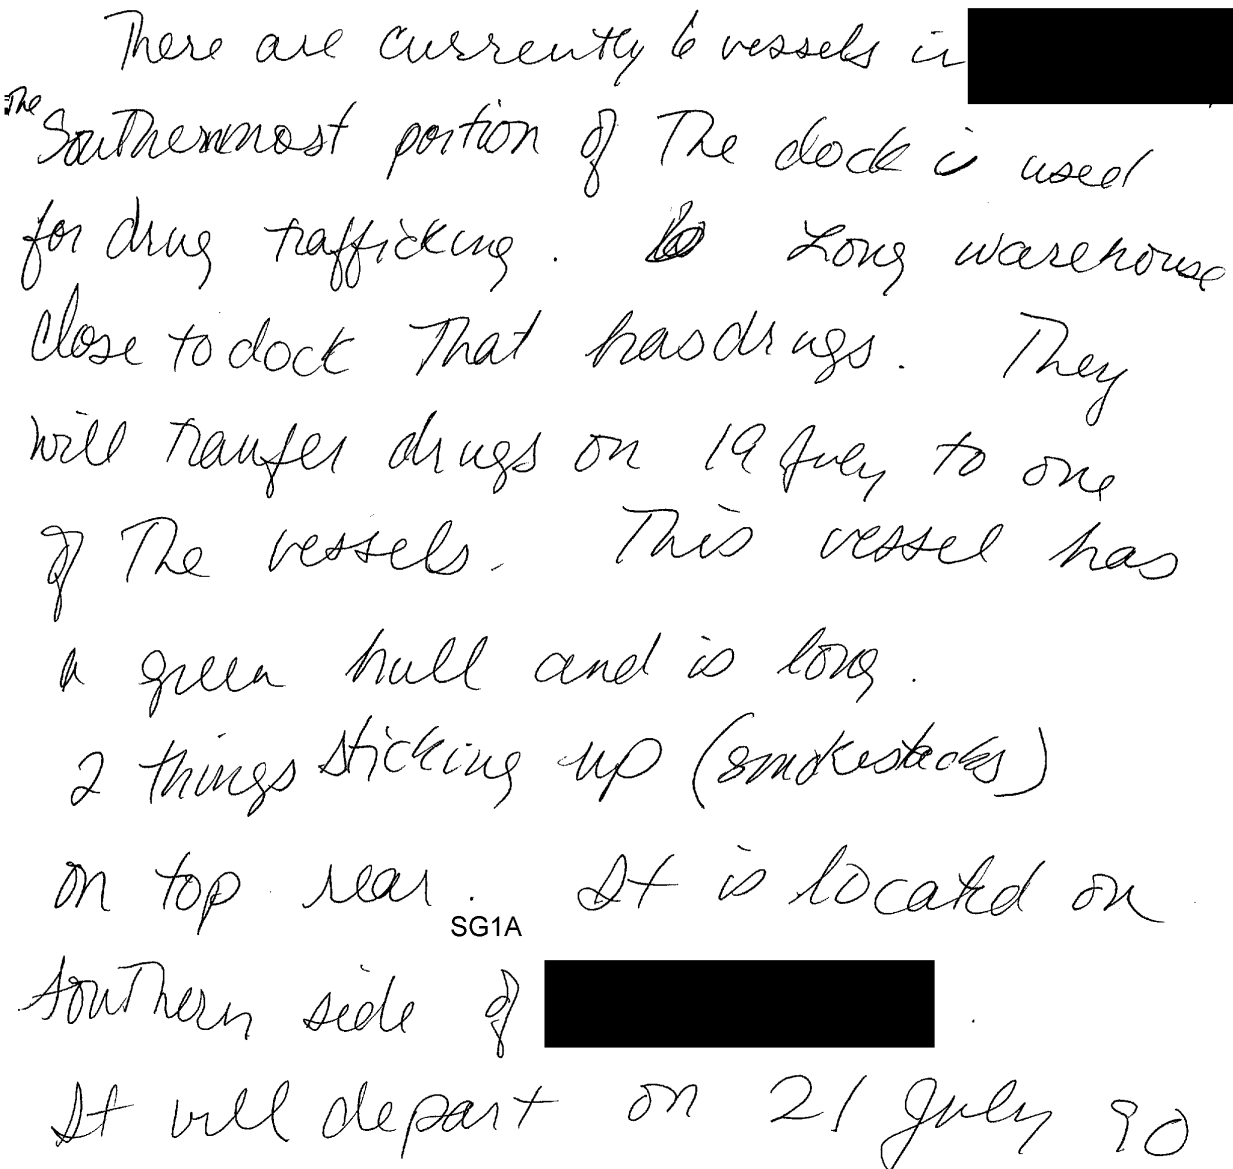 There are currently 6 vessels in
The Southernmost portion of The dock is used
for drug trafficking. Long warehouse
close to dock That has drugs. They
will tranfer drugs on 19 July to one
of The vessels. This vessel has
a green hull and is long.
2 things sticking up (smokestacks)
on top rear. It is located on
SG1A
southern side of .
It will depart on 21 July 90